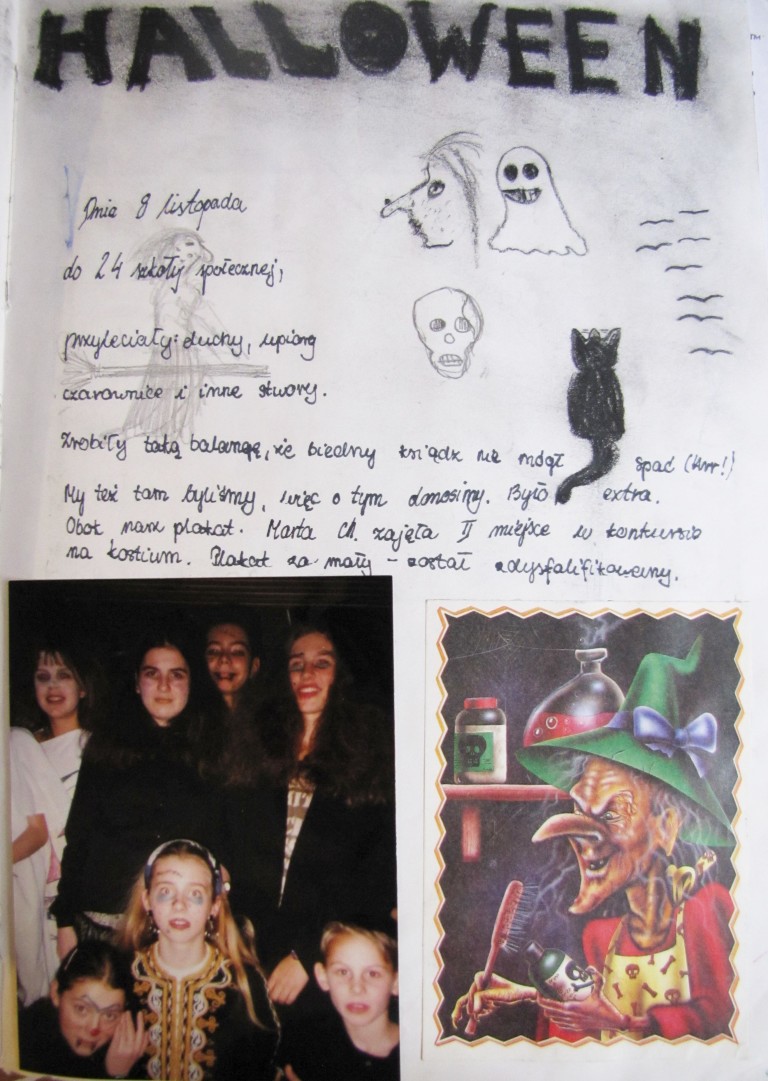 HALLOWEEN
TM
Dnia 8 listopada
do 24 szkoły społecznej,
przyleciały: duchy, upiory
czarownice i inne stwory.
Zrobiły taką balangę, że biedny ksiądz nie mógł spać (Wrr!)
My też tam byliśmy, więc o tym donosimy. Było extra.
Obok nasz plakat. Marta Ch. zajęła II miejsce w konkursie
na kostium. Plakat za mały – został zdysfalifikowany.